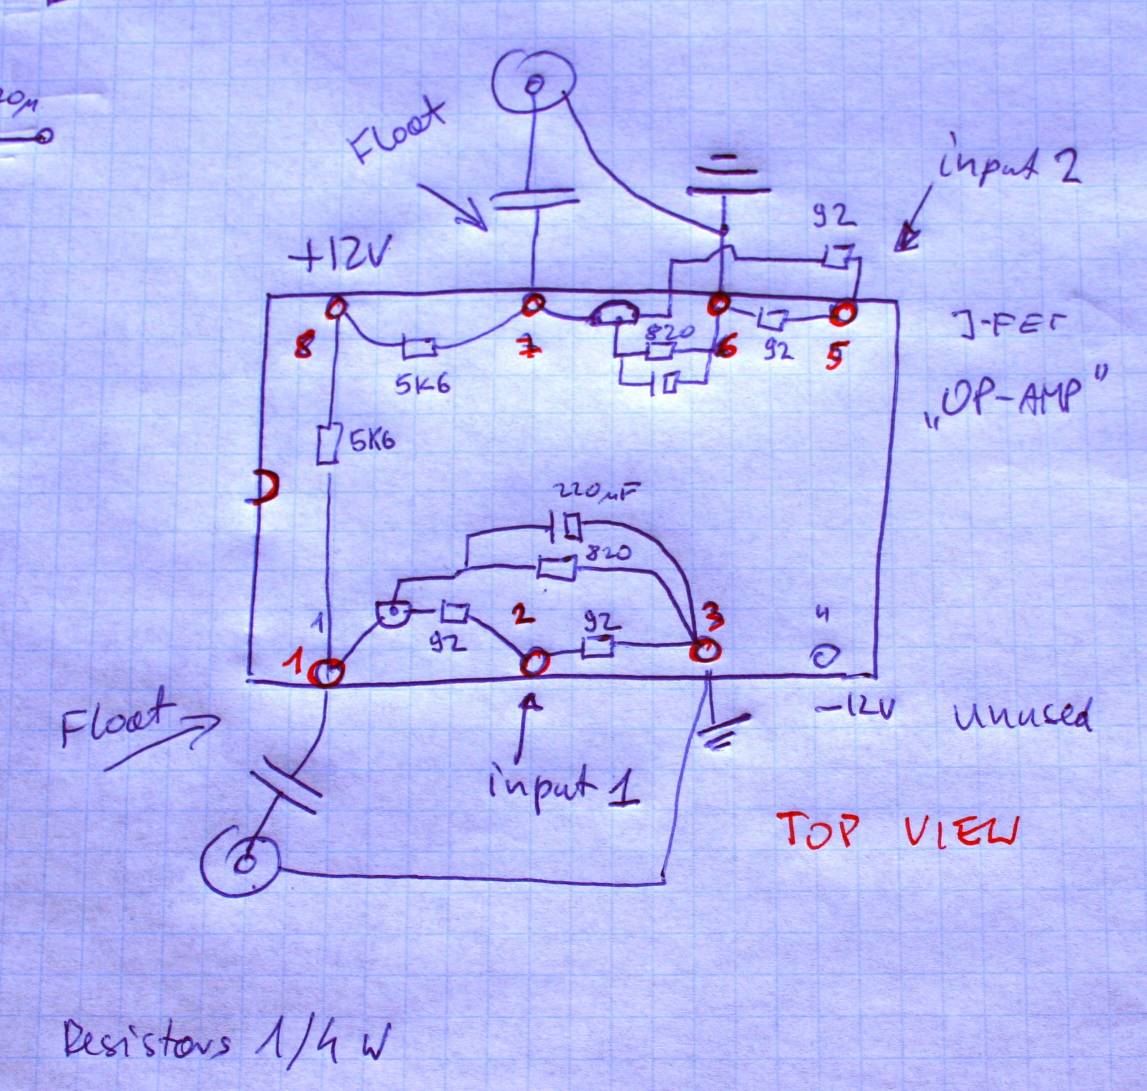 0µ
Float
input 2
92
+12V
8
7
820
6
92
5
J-FET
5K6
„OP-AMP"
5K6
220µF
820
1
1
92
2
92
3
4
Float
-12V
unused
input 1
TOP VIEW
Resistors 1/4 W